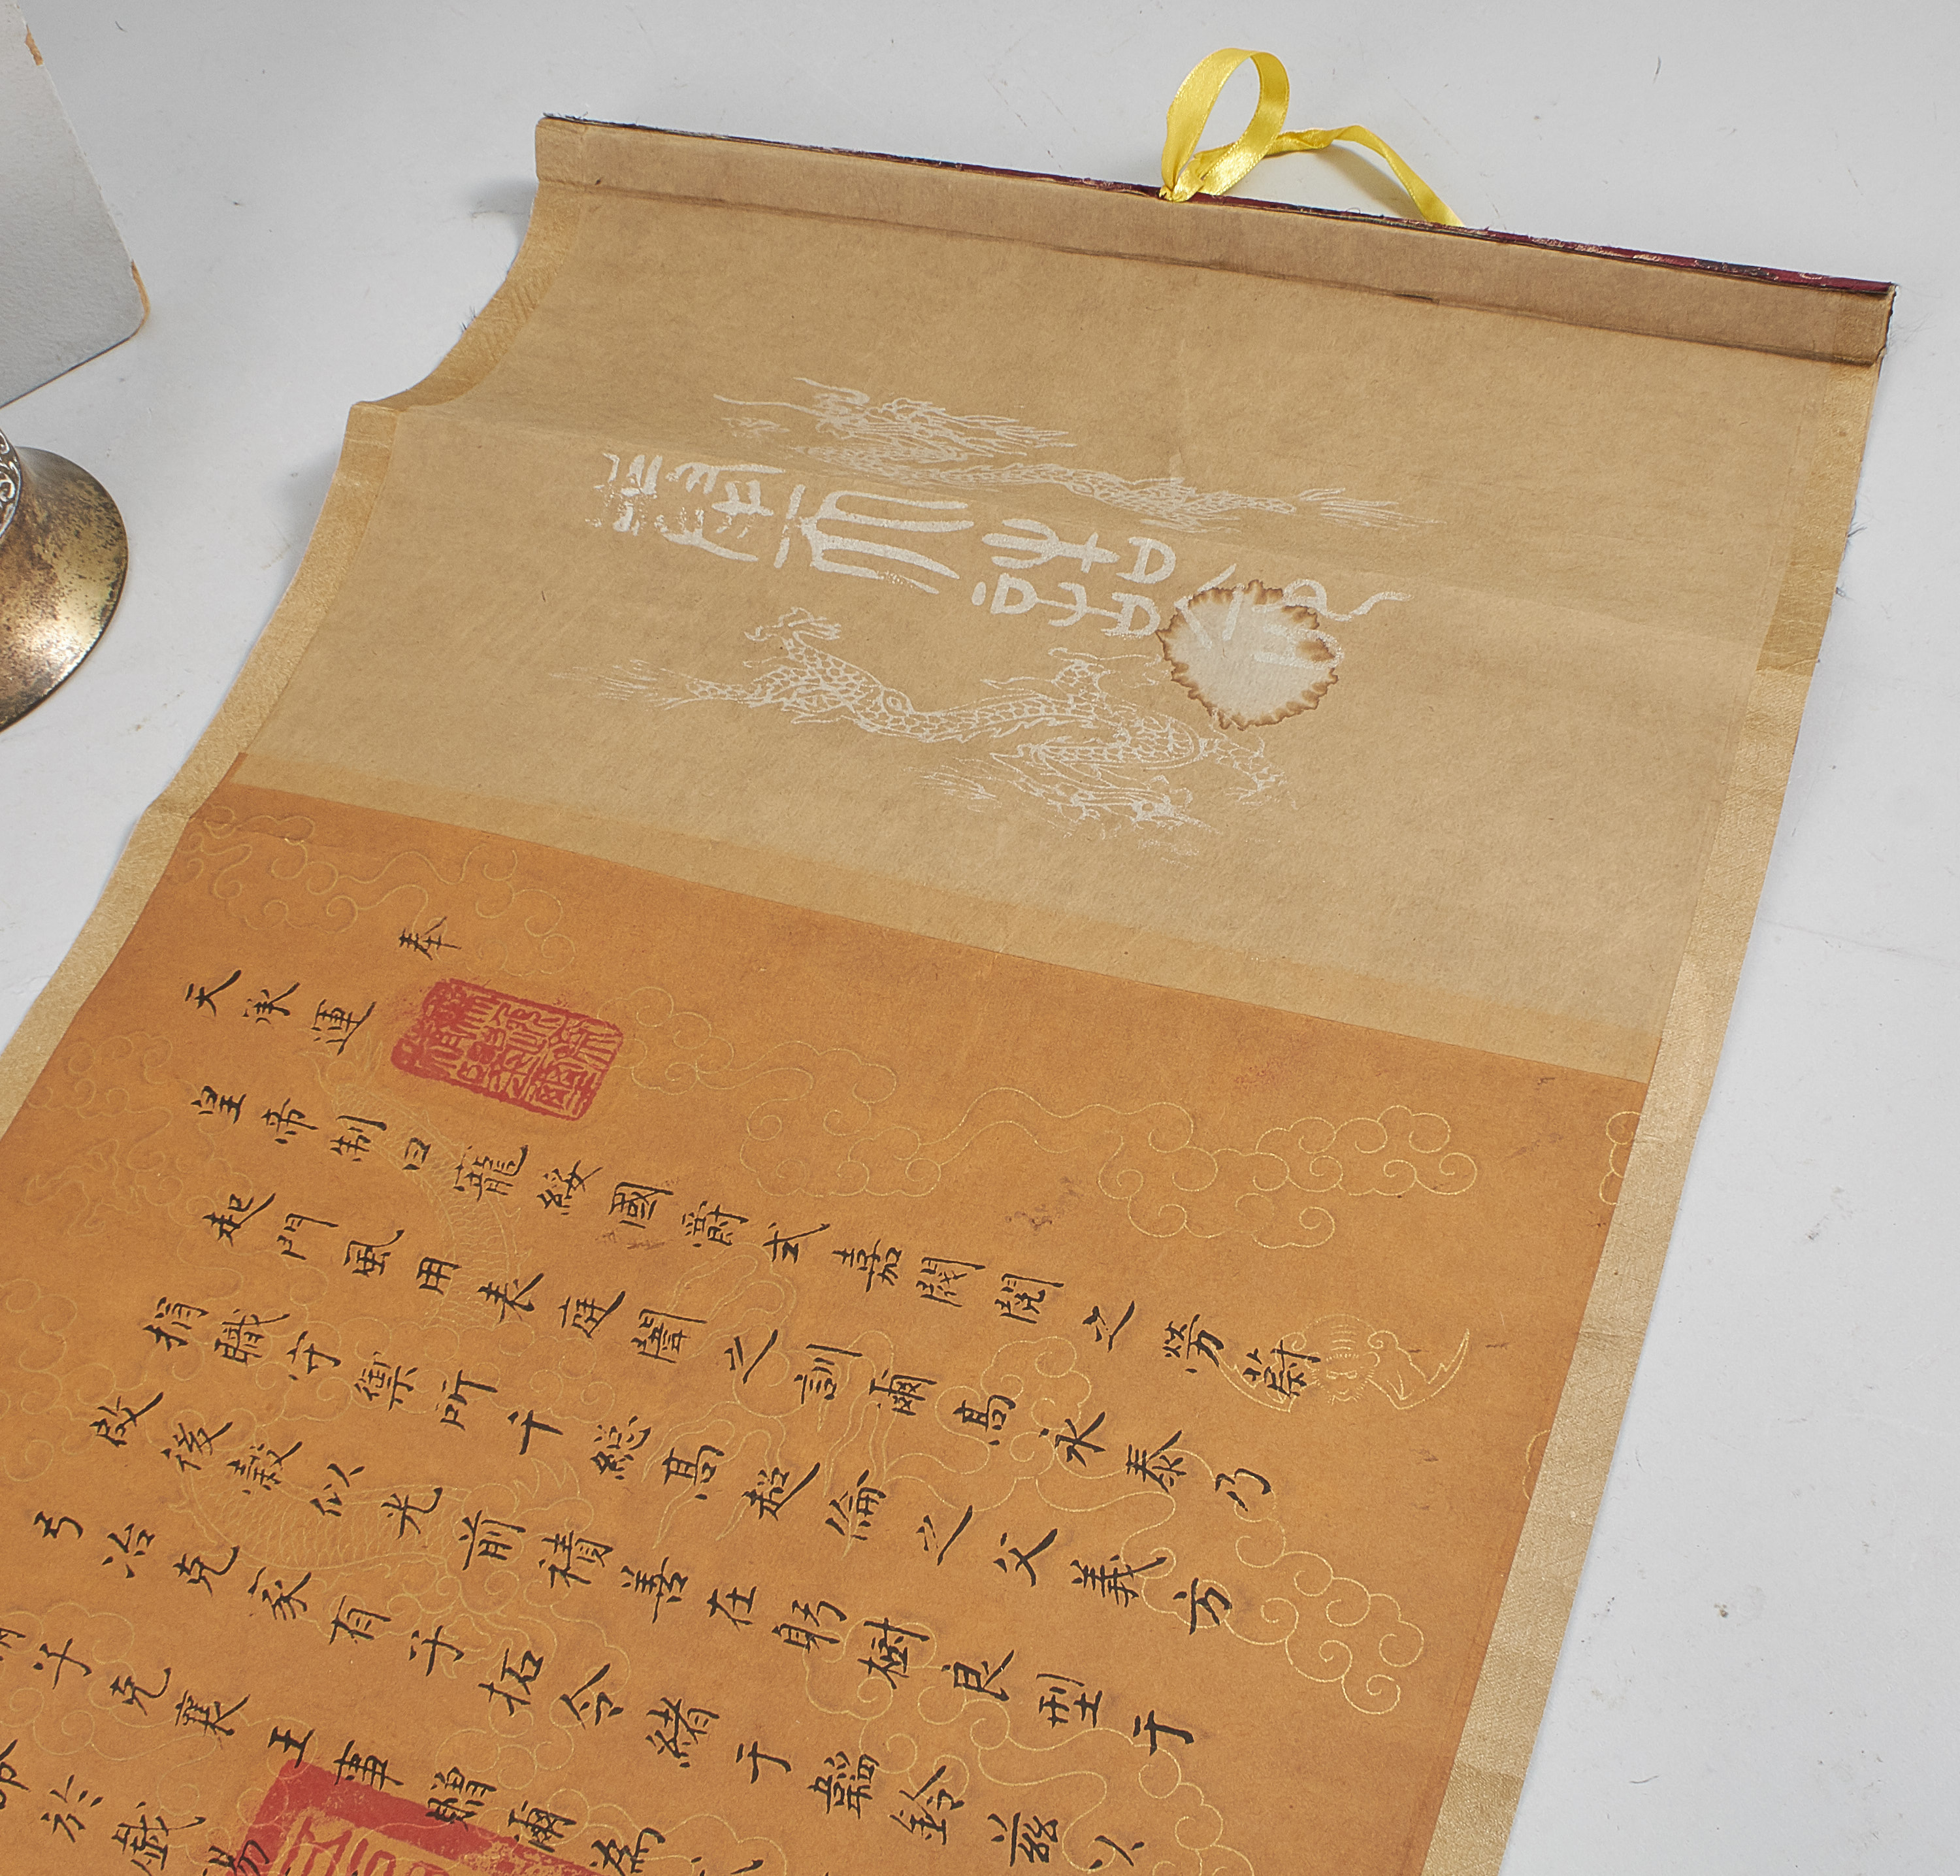 奉天誥命
奉
天承運
皇帝制曰寵綏國爵式嘉閥閱之勞蔚
起門風用表庭闈之訓爾高永泰乃
捐職守禦所千總高超倫之父義方
啟後穀似光前積善在躬樹良型于
弓冶克家有子拓令緒于韜鈐茲以
子克襄王事贈爾為
於戲